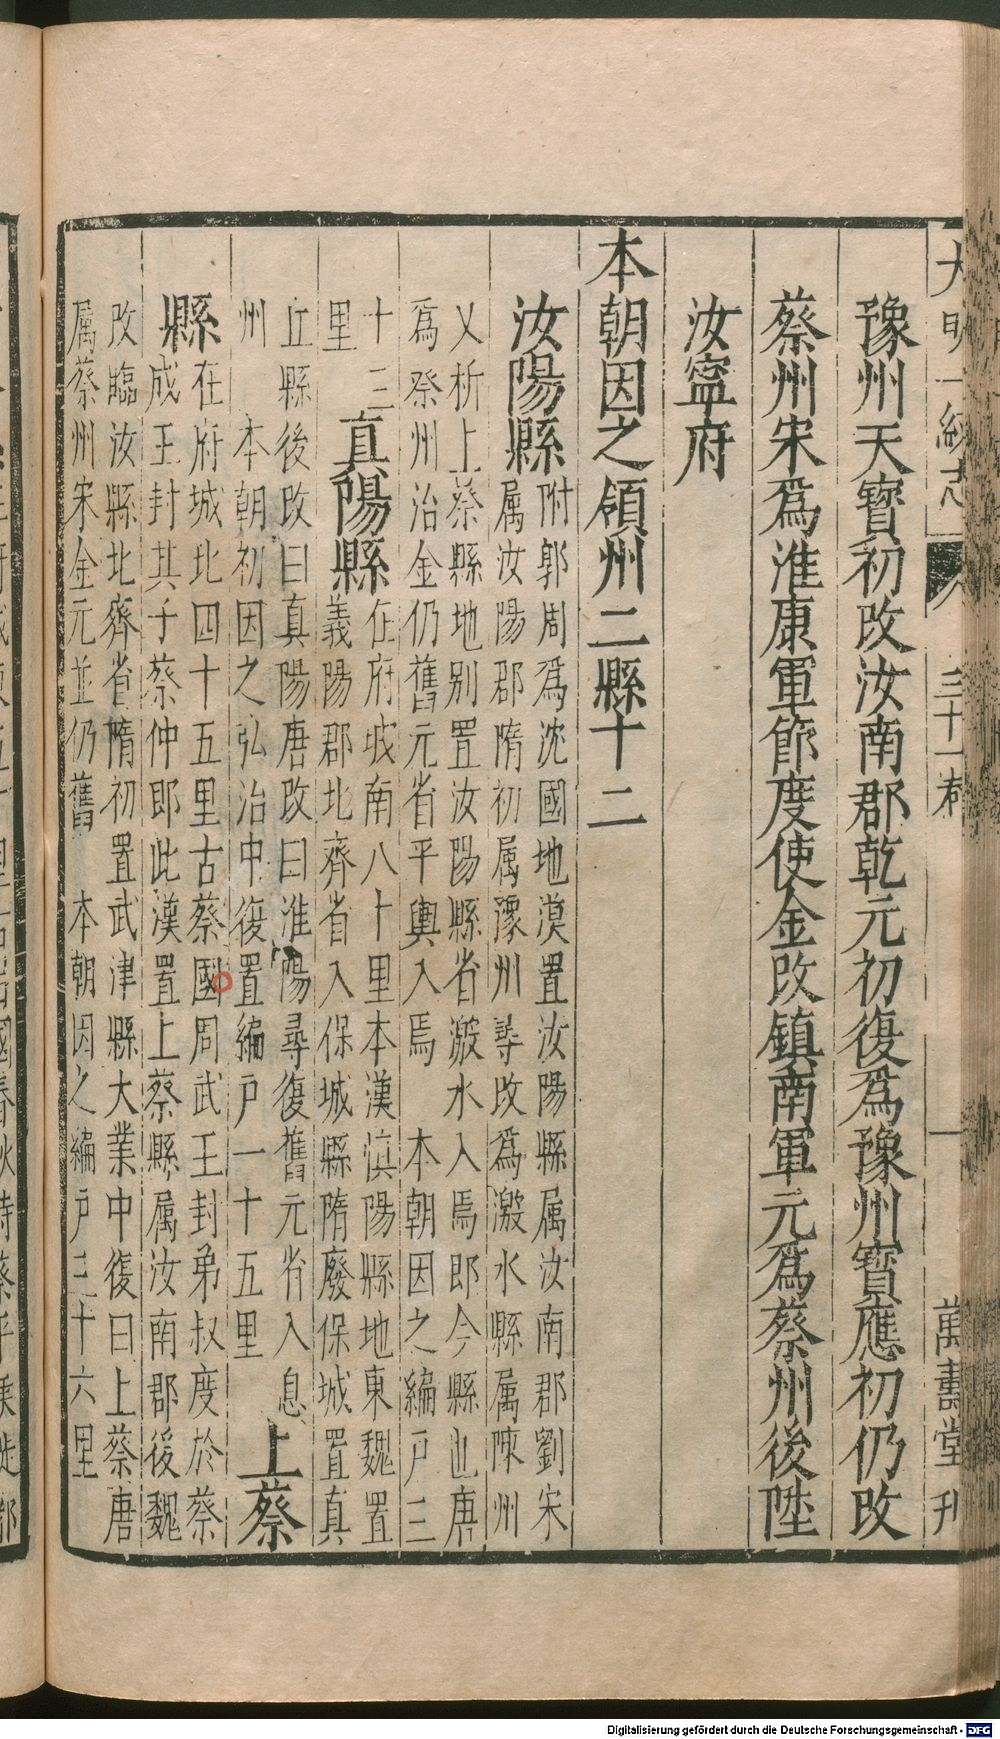 大明一統志 三十一卷 一 萬壽堂刊
豫州天寶初改汝南郡乾元初復爲豫州寶應初仍改
蔡州宋爲淮康軍節度使金改鎮南軍元爲蔡州後陞
汝寧府
本朝因之領州二縣十二
汝陽縣
附郭周爲沈國地漢置汝陽縣属汝南郡劉宋
属汝陽郡隋初属豫州尋改爲溵水縣属陳州
乂析上蔡縣地別置汝陽縣省溵水入焉即今縣也唐
爲祭州治金仍舊元省平輿入焉 本朝因之編戸三
十三
里
真陽縣
在府城南八十里本漢滇陽縣地東魏置
義陽郡北齊省入保城縣隋廢保城置真
丘縣後改曰真陽唐改曰淮陽尋復舊元省入息
州 本朝初因之弘治中復置編戸一十五里
上蔡
縣
在府城北四十五里古蔡國周武王封弟叔度於蔡
成王封其子蔡仲郎此漢置上蔡縣属汝南郡後魏
改臨汝縣北齊省隋初置武津縣大業中復曰上蔡唐
属蔡州宋金元並仍舊 本朝因之編戸三十六里
Digitalisierung gefördert durch die Deutsche Forschungsgemeinschaft - DFG